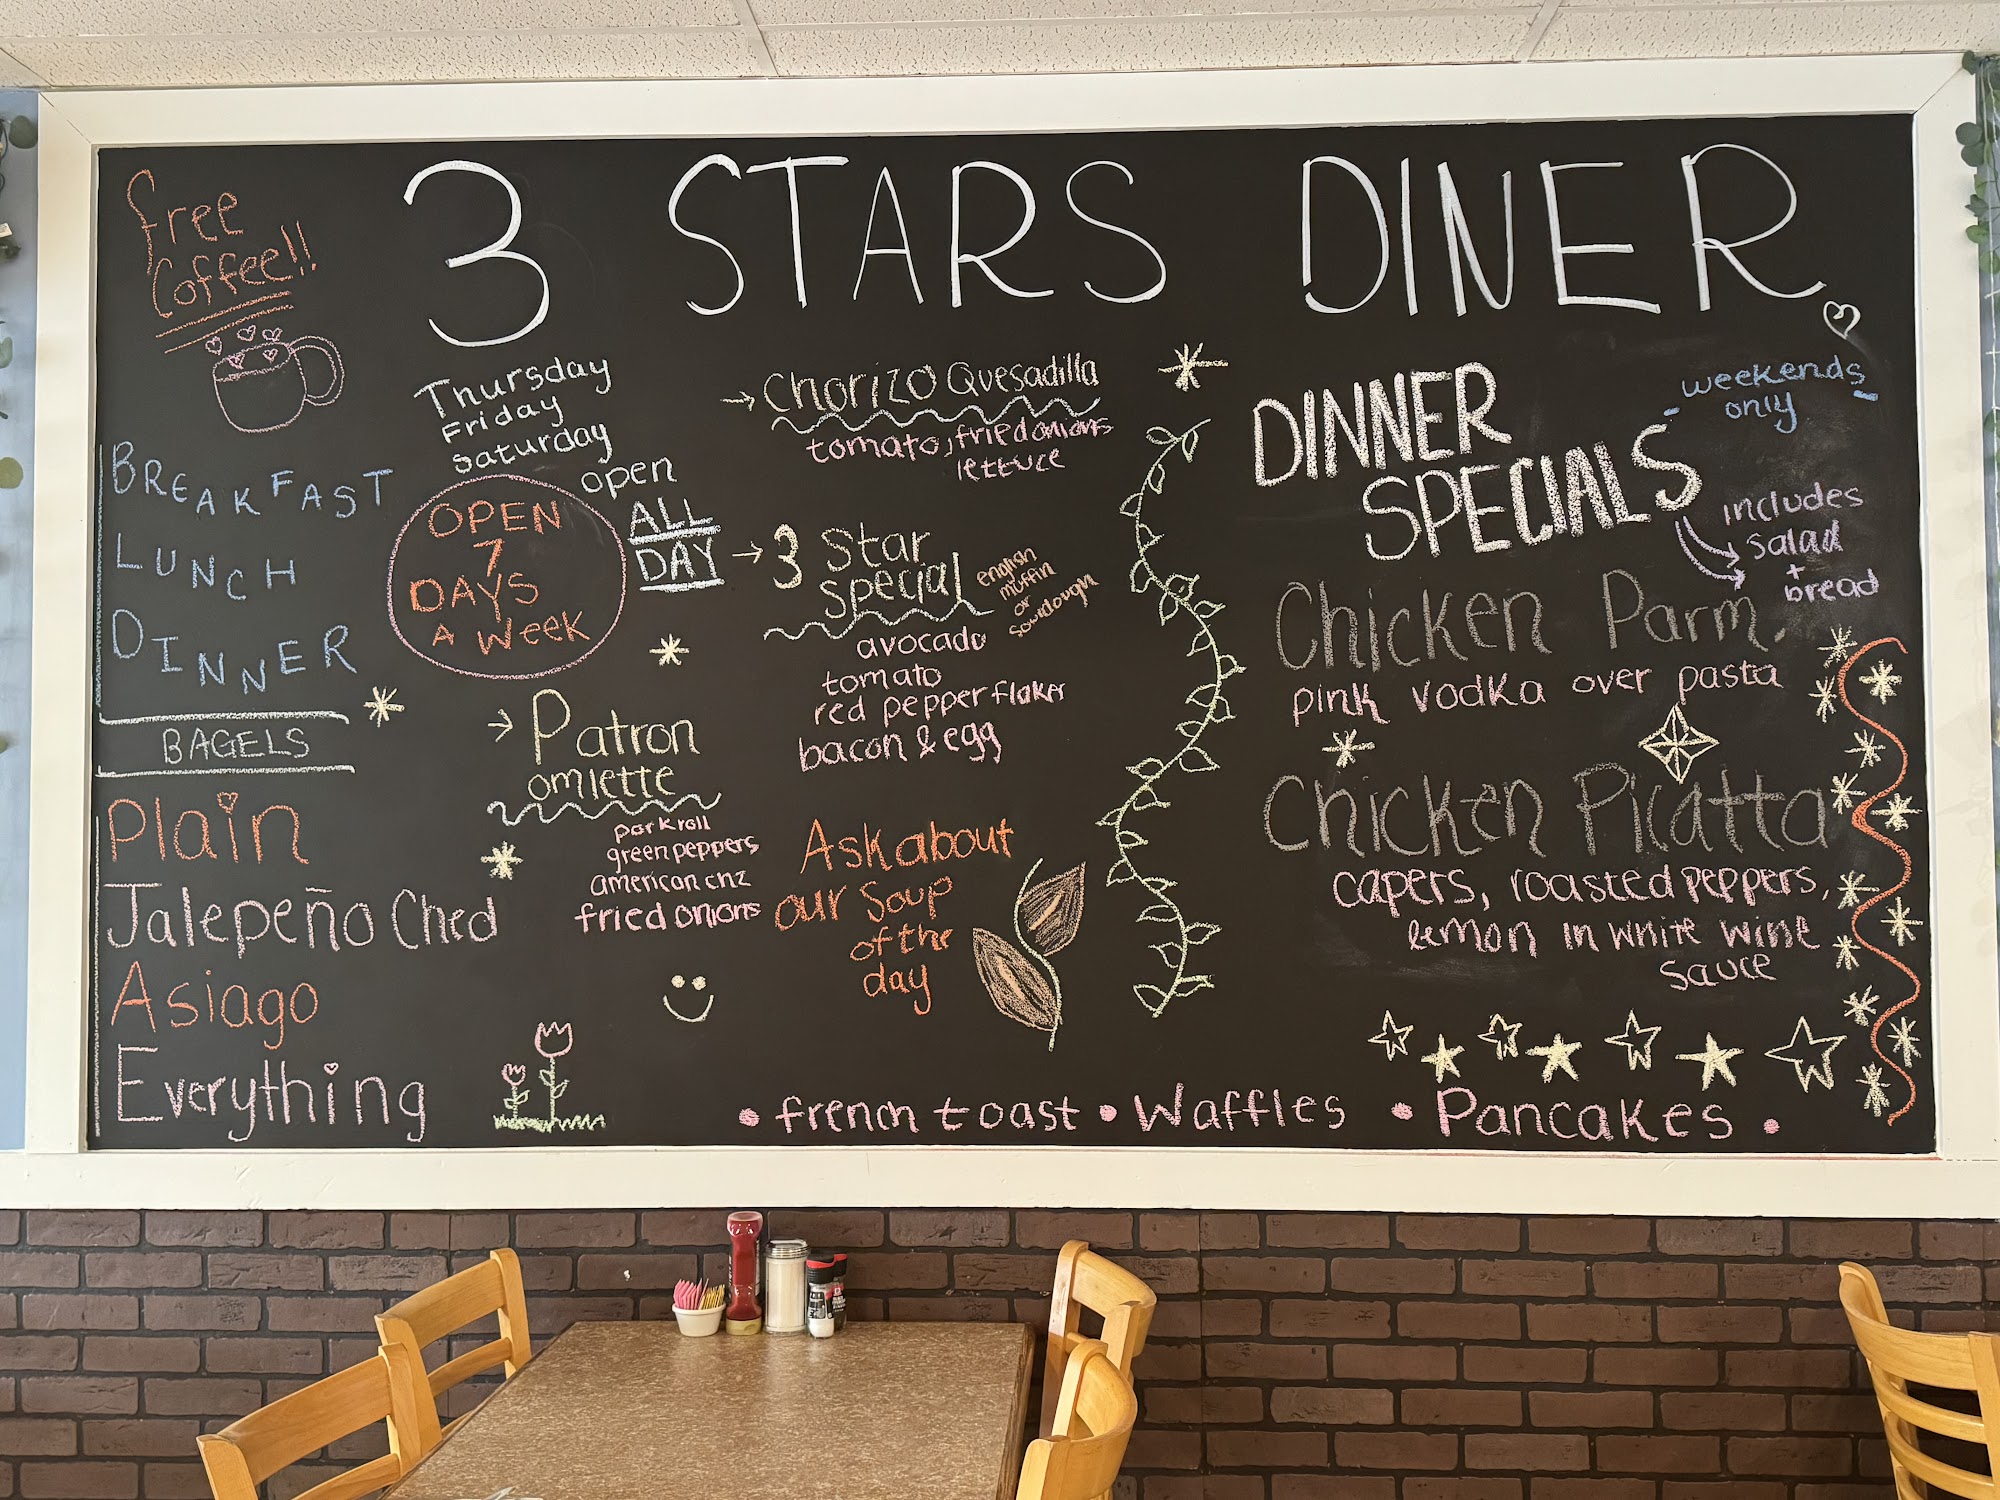 3 STARS DINER
Free
Coffee!!
BREAKFAST
LUNCH
DINNER
BAGELS
Plain
Jalepeño Ched
Asiago
Everything
Thursday
Friday
saturday
open
ALL
DAY
OPEN
7
DAYS
A Week
→ Patron
omlette
pork roll
green peppers
american chz
fried onions
→ Chorizo Quesadilla
tomato, fried onions
lettuce
→ 3 Star
special
english
muffin
or
sourdough
avocado
tomato
red pepper flakes
bacon & egg
Ask about
our Soup
of the
day
DINNER
SPECIALS
weekends
only
includes
salad
+
bread
Chicken Parm.
pink vodka over pasta
Chicken Picatta
capers, roasted peppers,
lemon in white wine
sauce
• french toast • Waffles • Pancakes •